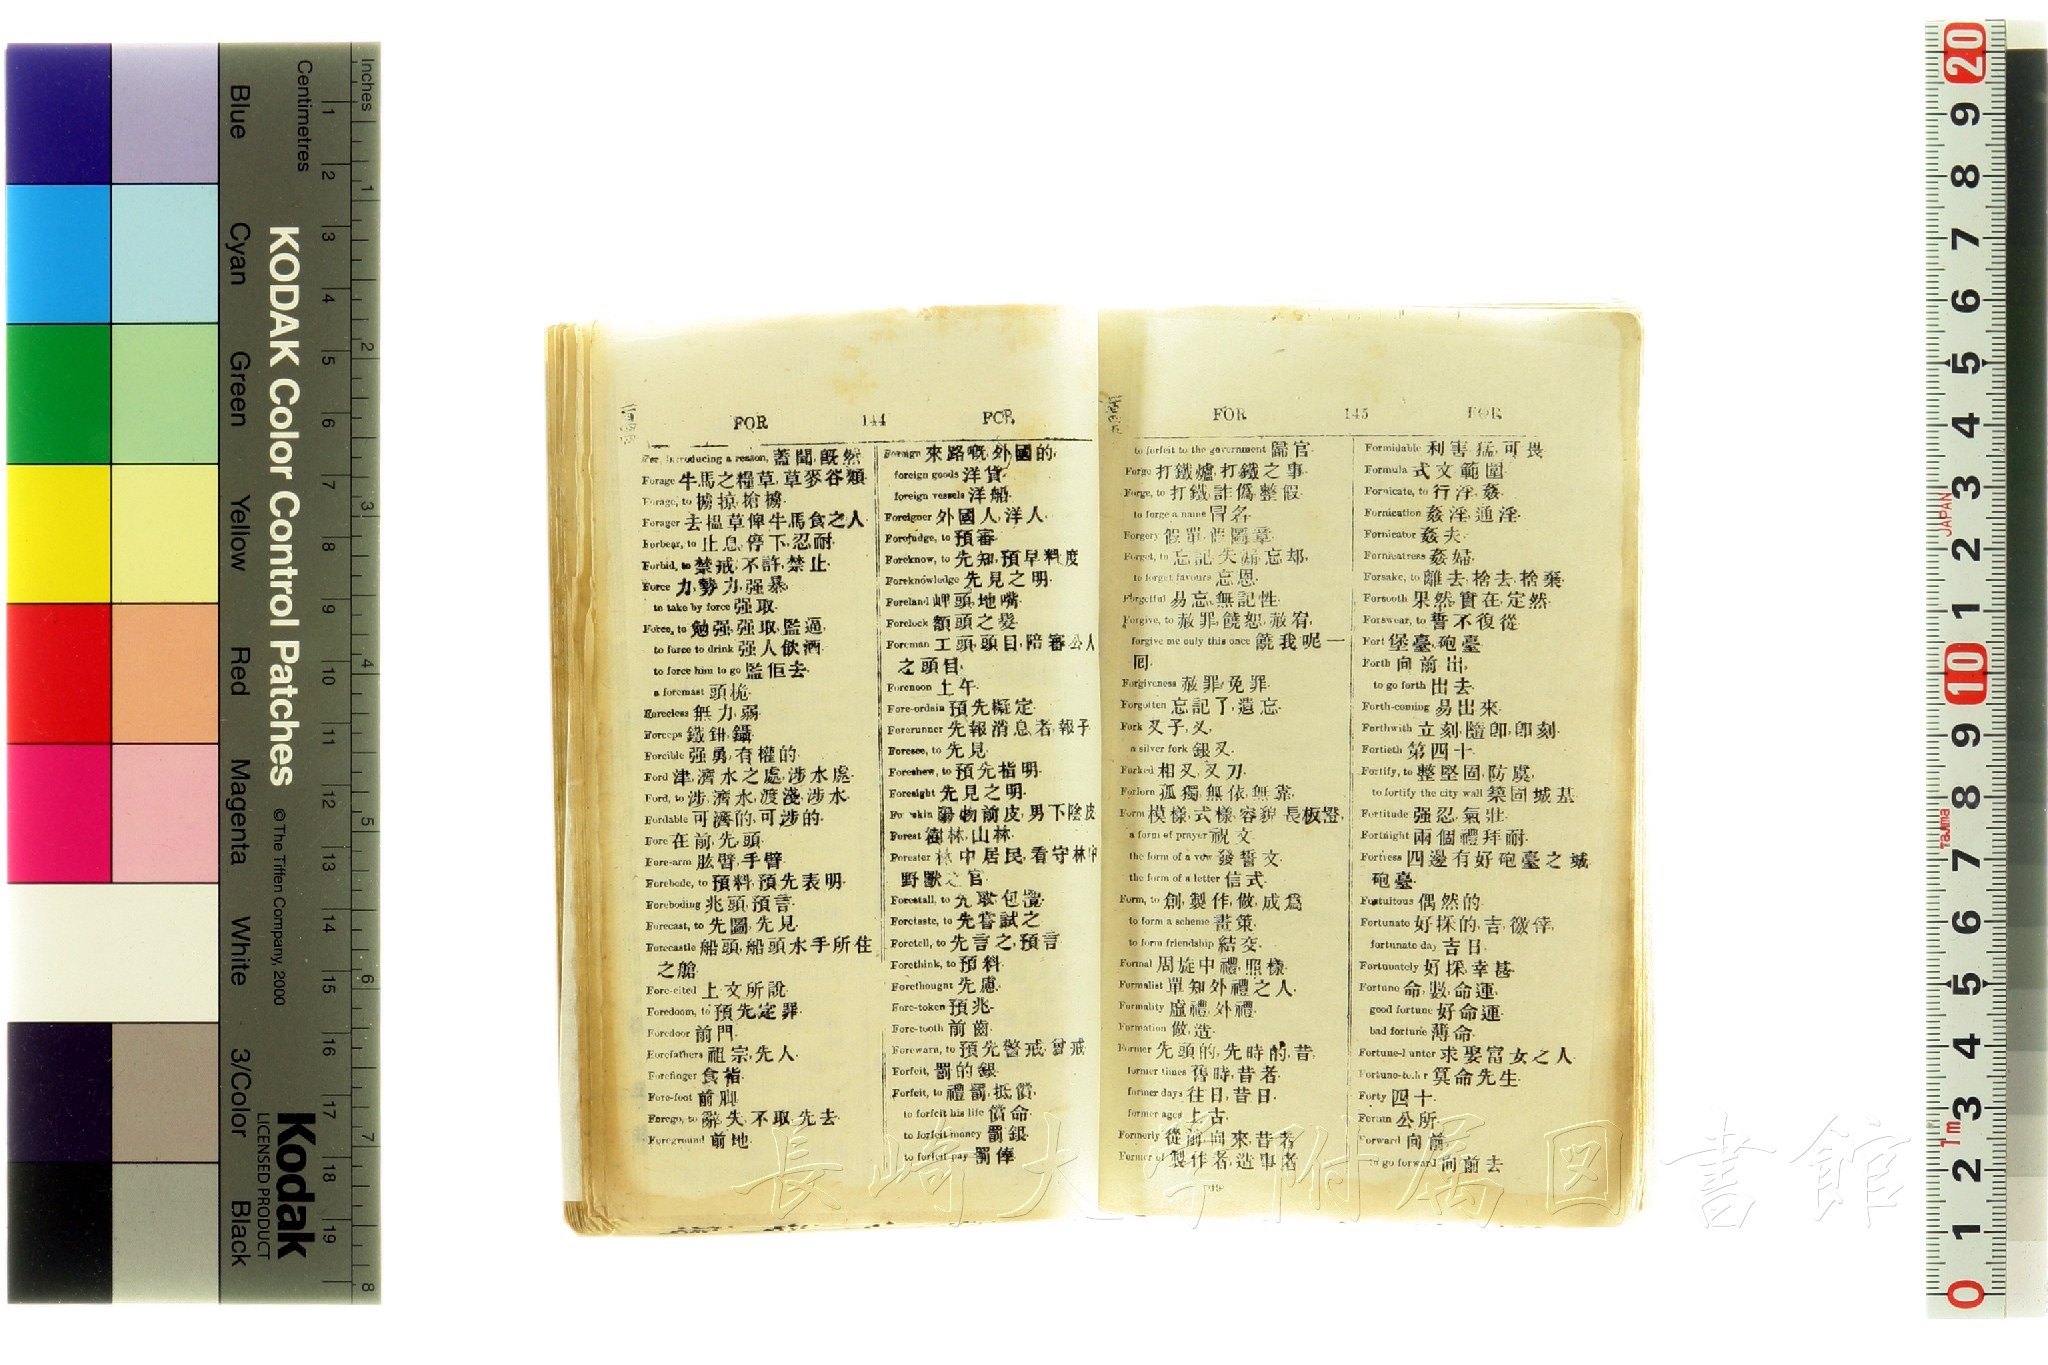 Inches
Centimetres
Blue
Cyan
Green
Yellow
Red
Magenta
White
3/Color
Black
KODAK Color Control Patches
© The Tiffen Company, 2000
Kodak
LICENSED PRODUCT
FOR 144 FOR
For, introducing a reason, 蓋聞, 既然
Forage 牛馬之糧草, 草麥谷類
Forage, to 擄掠, 搶擄
Forager 去揾草俾牛馬食之人
Forbear, to 止息, 停下, 忍耐
Forbid, to 禁戒, 不許, 禁止
Force 力, 勢力, 强暴
to take by force 强取
Force, to 勉强, 强取, 監逼
to force to drink 强人飲酒
to force him to go 監佢去
a foremast 頭桅
Forceless 無力, 弱
Forceps 鐵鉗, 鑷
Forcible 强勇, 有權的
Ford 津, 濟水之處, 涉水處
Ford, to 涉, 濟水, 渡淺, 涉水
Fordable 可濟的, 可涉的
Fore 在前, 先, 頭
Fore-arm 肱臂, 手臂
Forebode, to 預料, 預先表明
Foreboding 兆頭, 預言
Forecast, to 先圖, 先見
Forecastle 船頭, 船頭水手所住
之艙
Fore-cited 上文所說
Foredoom, to 預先定罪
Foredoor 前門
Forefathers 祖宗, 先人
Forefinger 食指
Fore-foot 前脚
Forego, to 辭, 失, 不取, 先去
Foreground 前地
Foreign 來路嘅, 外國的
foreign goods 洋貨
foreign vessels 洋船
Foreigner 外國人, 洋人
Forejudge, to 預審
Foreknow, to 先知, 預早料度
Foreknowledge 先見之明
Foreland 岬頭, 地嘴
Forelock 額頭之髮
Foreman 工頭, 頭目, 陪審公人
之頭目
Forenoon 上午
Fore-ordain 預先擬定
Forerunner 先報消息者, 報子
Foresee, to 先見
Foreshew, to 預先指明
Foresight 先見之明
Foreskin 陽物前皮, 男下陰皮
Forest 樹林, 山林
Forester 林中居民, 看守林中
野獸之官
Forestall, to 先取, 包攬
Foretaste, to 先嘗試之
Foretell, to 先言之, 預言
Forethink, to 預料
Forethought 先慮
Fore-token 預兆
Fore-tooth 前齒
Forewarn, to 預先警戒
Forfeit, 罰的銀
Forfeit, to 禮罰, 抵償
to forfeit his life 償命
to forfeit money 罰銀
to forfeit pay 罰俸
FOR 145 FOR
to forfeit to the government 歸官
Forge 打鐵爐, 打鐵之事
Forge, to 打鐵, 詐僞, 整假
to forge a name 冒名
Forgery 假單, 假圖章
Forget, to 忘記, 失漏, 忘却
to forget favours 忘恩
Forgetful 易忘, 無記性
Forgive, to 赦罪, 饒恕, 赦宥
forgive me only this once 饒我呢一
囘
Forgiveness 赦罪, 免罪
Forgotten 忘記了, 遺忘
Fork 叉子, 叉
a silver fork 銀叉
Forked 相叉, 叉刀
Forlorn 孤獨, 無依, 無靠
Form 模樣, 式樣, 容貌, 長板凳
a form of prayer 祝文
the form of a vow 發誓文
the form of a letter 信式
Form, to 創, 製作, 做, 成爲
to form a scheme 畫策
to form friendship 結交
Formal 周旋中禮, 照樣
Formalist 單知外禮之人
Formality 虛禮, 外禮
Formation 做, 造
Former 先頭的, 先時的, 昔
former times 舊時, 昔者
former days 往日, 昔日
former ages 上古
Formerly 從前, 向來, 昔者
Former of 製作者, 造事者
Formidable 利害, 猛, 可畏
Formula 式文, 範圍
Fornicate, to 行淫, 姦
Fornication 姦淫, 通淫
Fornicator 姦夫
Fornicatress 姦婦
Forsake, to 離去, 捨去, 捨棄
Forsooth 果然, 實在, 定然
Forswear, to 誓不復從
Fort 堡臺, 砲臺
Forth 向前, 出
to go forth 出去
Forth-coming 易出來
Forthwith 立刻, 隨即, 即刻
Fortieth 第四十
Fortify, to 整堅固, 防虞
to fortify the city wall 築固城基
Fortitude 强忍, 氣壯
Fortnight 兩個禮拜耐
Fortress 四邊有好砲臺之城
砲臺
Fortuitous 偶然的
Fortunate 好採的, 吉, 徼倖
fortunate day 吉日
Fortunately 好採, 幸甚
Fortune 命, 數, 命運
good fortune 好命運
bad fortune 薄命
Fortune-hunter 求娶富女之人
Fortune-teller 算命先生
Forty 四十
Forum 公所
Forward 向前
to go forward 向前去
19
長崎大学附属図書館
JAPAN
Tajima
1m